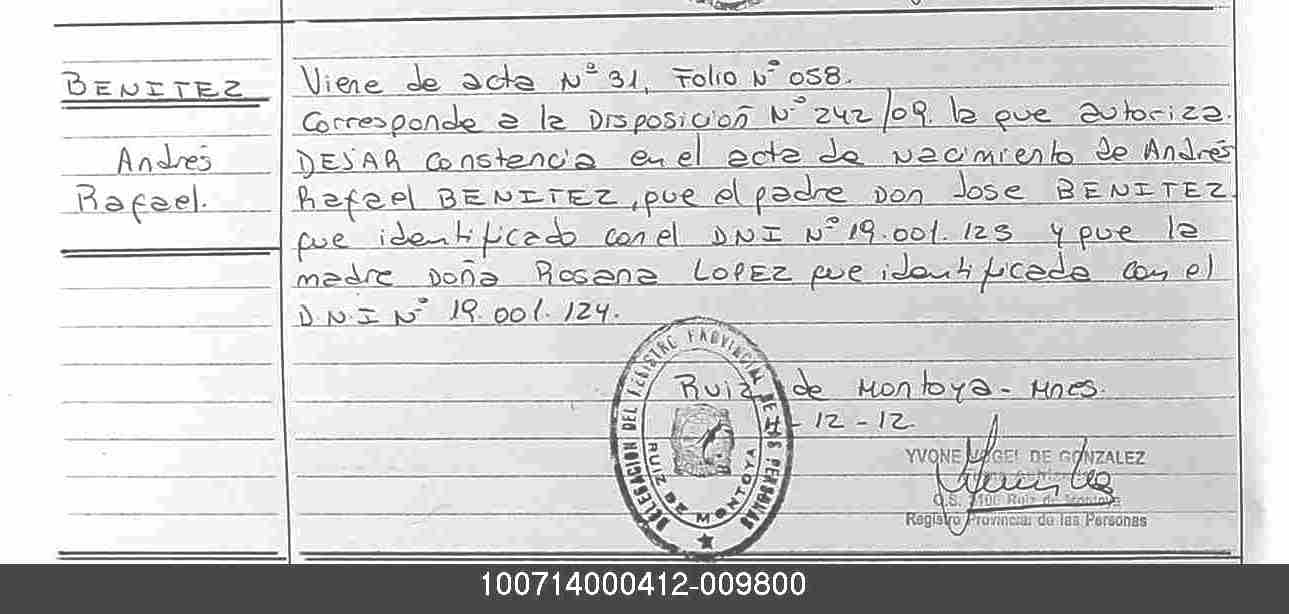 BENITEZ
Andrés
Rafael.
Viene de acta Nº 31, Folio Nº 058.
Corresponde a la Disposición Nº 242/09. la que autoriza.
DEJAR constancia en el acta de nacimiento de Andrés
Rafael BENITEZ, que el padre Don Jose BENITEZ
fue identificado con el DNI Nº 19.001.123 y que la
madre Doña Rosana LOPEZ fue identificada con el
D.N.I Nº 19.001.124.
Ruiz de Montoya - Mnes.
- 12 - 12.
DELEGACION DEL REGISTRO PROVINCIAL DE LAS PERSONAS
RUIZ DE MONTOYA
YVONE DE GONZALEZ
O.S. Ruiz de Montoya
Registro Provincial de las Personas
100714000412-009800